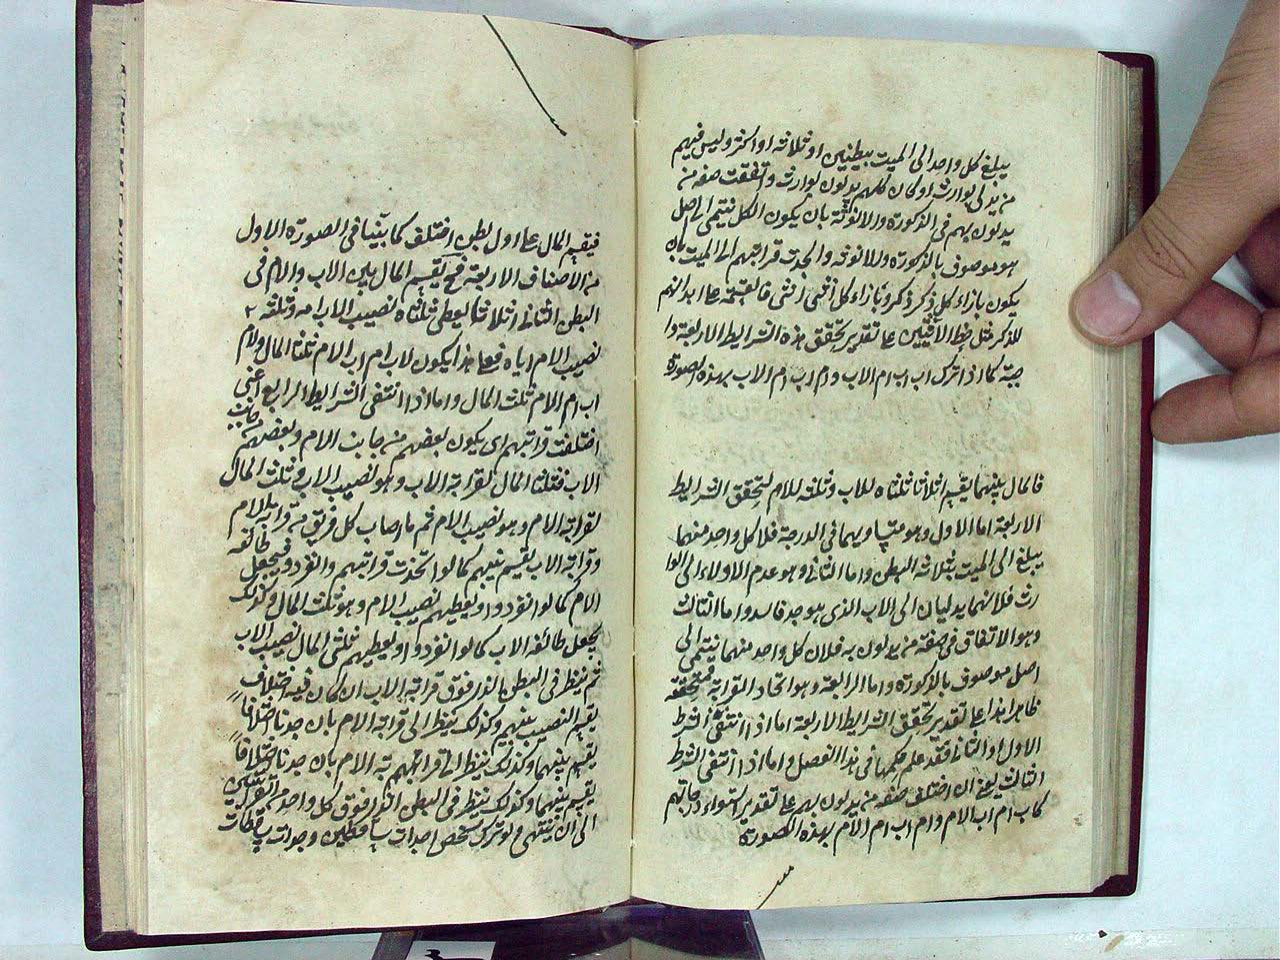 يبلغ كل واحد الى الميت ببطنين او ثلاثه او اكثر وليس فيهم
من يدلى بوارث او كان كلهم يدلون بوارث واتفقت صفه من
يدلون بهم فى الذكورة والانوثة بان يكون الكل ينتمى الى اصل
هو موصوف بالذكورة والانوثه واتحدت قرابتهم الى الميت بان
يكون بازاء كل ذكر ذكر وبازاء كل انثى انثى فالقسمة على ابدانهم
للذكر مثل حظ الانثيين على تقدير تحقق هذه الشرايط الاربعة وا
جبة كما اذا ترك اب اب ام الاب وام اب ام الاب بهذه الصورة
فالمال بينهما يقسم اثلاثا ثلثاه للاب وثلثه للام لتحقق الشرايط
الاربعة اما الاول وهو متساويهما فى الدرجة فلا كل واحد منهما
يبلغ الى الميت بثلاثة البطن واما الثانى وهو عدم الاولاء الى الوا
رث فلانهما يدليان الى الاب الذى هو جد فاسد واما الثالث
وهو الاتفاق فى صفة من يدلون به فلان كل واحد منهما ينتمى الى
اصل موصوف بالذكورة واما الرابعة وهو اتحاد القرابة فتحققه
ظاهر هذا على تقدير تحقق الشرايط الاربعة اما اذا انتفى الشرط
الاول او الثانى فقد علم حكمها فى هذا الفصل واما اذا انتفى الشرط
الثالث يعنى ان اختلف صفه من يدلون بهم على تقدير استواء درجاتهم
كاب ام اب الام وام اب ام الام بهذه الصورة
فيقسم المال على اول بطن اختلف كما بينا فى الصورة الاول
من الاصناف الاربعة فح يقسم المال بين الاب والام فى
البطن الثانى اثلاثا يعطى ثلثاه نصيب الاب امه وثلثه
نصيب الام اباه فعلى هذا يكون لاب ام اب الام ثلثا المال ولام
اب ام الام ثلث المال واما اذا انتفى الشرايط الرابع اعنى
اختلفت قرابتهم اى يكون بعضهم من جانب الام وبعضهم من جانب
الاب فثلثا المال لقرابة الاب وهو نصيب الاب وثلث المال
لقرابة الام وهو نصيب الام ثم ما اصاب كل فريق من قرابة الام
وقرابة الاب يقسم بينهم كما لو اتحدت قرابتهم وانفردو فيجعل طائفة
الام كما لو انفردو او يعطيهم نصيب الام وهو ثلث المال وكذلك
يجعل طائفه الاب كما لو انفردو او يعطيهم ثلثى المال نصيب الاب
ثم ينظر فى البطن الذى فوق قرابة الاب ان كان فيه اختلاف
يقسم النصيب بينهم وكذلك ينظر الى قرابة الام بان وجدنا اختلافا
يقسم بينهما وكذلك ينظر الى قرابتهم به الام بان وجدنا اختلافا
يقسم بينهما وكذلك ينظر فى البطن الذى فوق كل واحد من الفريقين
الى ان ينتهى ولو ترك شخص اجدات ساقطين وجدات ساقطات